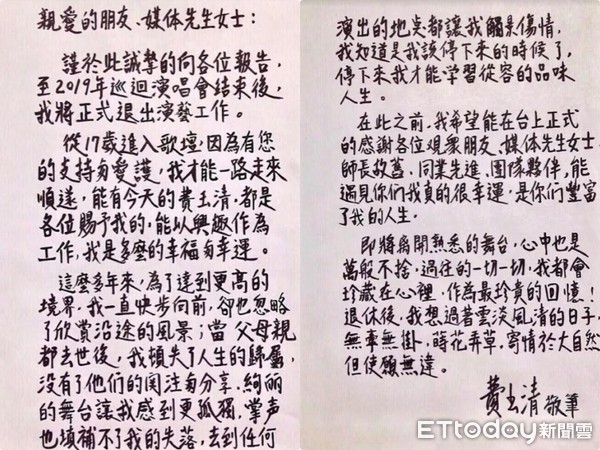 親愛的朋友、媒体先生女士：
謹於此誠摯的向各位報告，
至2019年巡迴演唱會結束後，
我將正式退出演藝工作。
從17歲進入歌壇，因為有您
的支持与愛護，我才能一路走來
順遂，能有今天的費玉清，都是
各位賜予我的，能以興趣作為
工作，我是多麼的幸福与幸運。
這麼多年來，為了達到更高的
境界，我一直快步向前，卻也忽略
了欣賞沿途的風景；當父母親
都去世後，我頓失了人生的歸屬，
沒有了他們的関注与分享，絢丽
的舞台讓我感到更孤獨，掌声
也填補不了我的失落，去到任何
演出的地点都讓我觸景傷情，
我知道是我該停下來的時候了，
停下來我才能學習從容的品味
人生。
在此之前，我希望能在台上正式
的感謝各位觀衆朋友、媒体先生女士、
師長故舊、同業先進、團隊夥伴，能
遇見你們我真的很幸運，是你們豐富
了我的人生。
即將離開熟悉的舞台，心中也是
萬般不捨，過往的一切一切，我都會
珍藏在心裡，作為最珍貴的回憶！
退休後，我想過著雲淡風清的日子，
無牽無掛，蒔花弄草，寄情於大自然
但使願無違。
費玉清 敬筆
ETtoday新聞雲